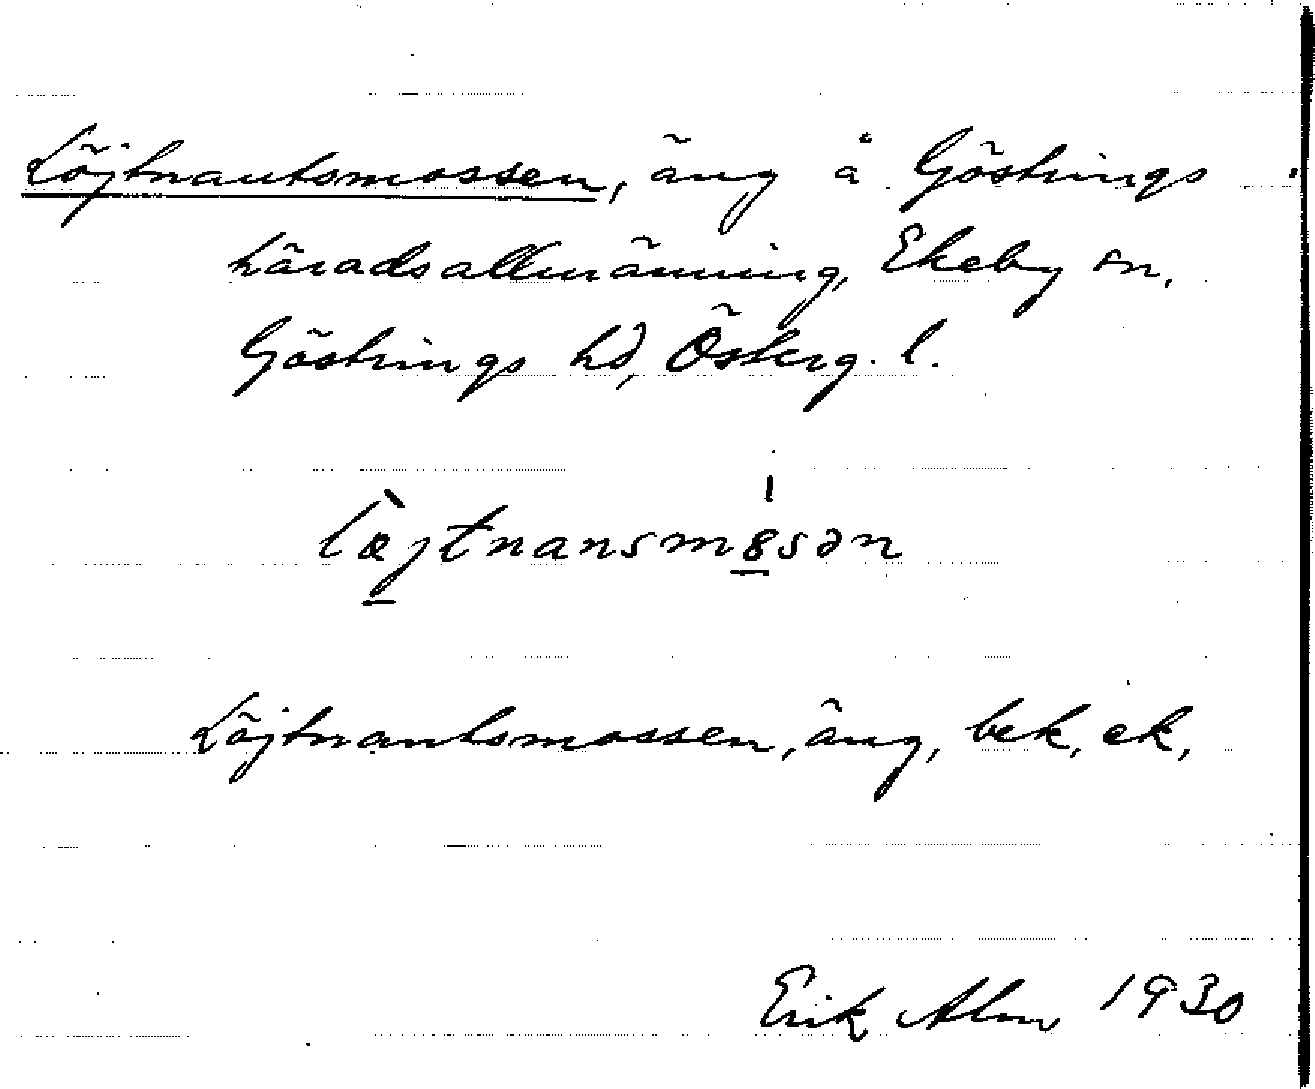 Löjtnantsmossen, äng å Göstrings
häradsallmänning, Ekeby sn,
Göstrings hd, Österg. l.
lœ̀jtnansmȣ́sən
Löjtnantsmossen, äng, bek, ek,
Erik Alm 1930